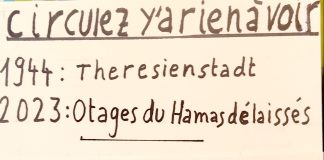 circulez y'a rien à voir
1944 : Theresienstadt
2023 : Otages du Hamas délaissés